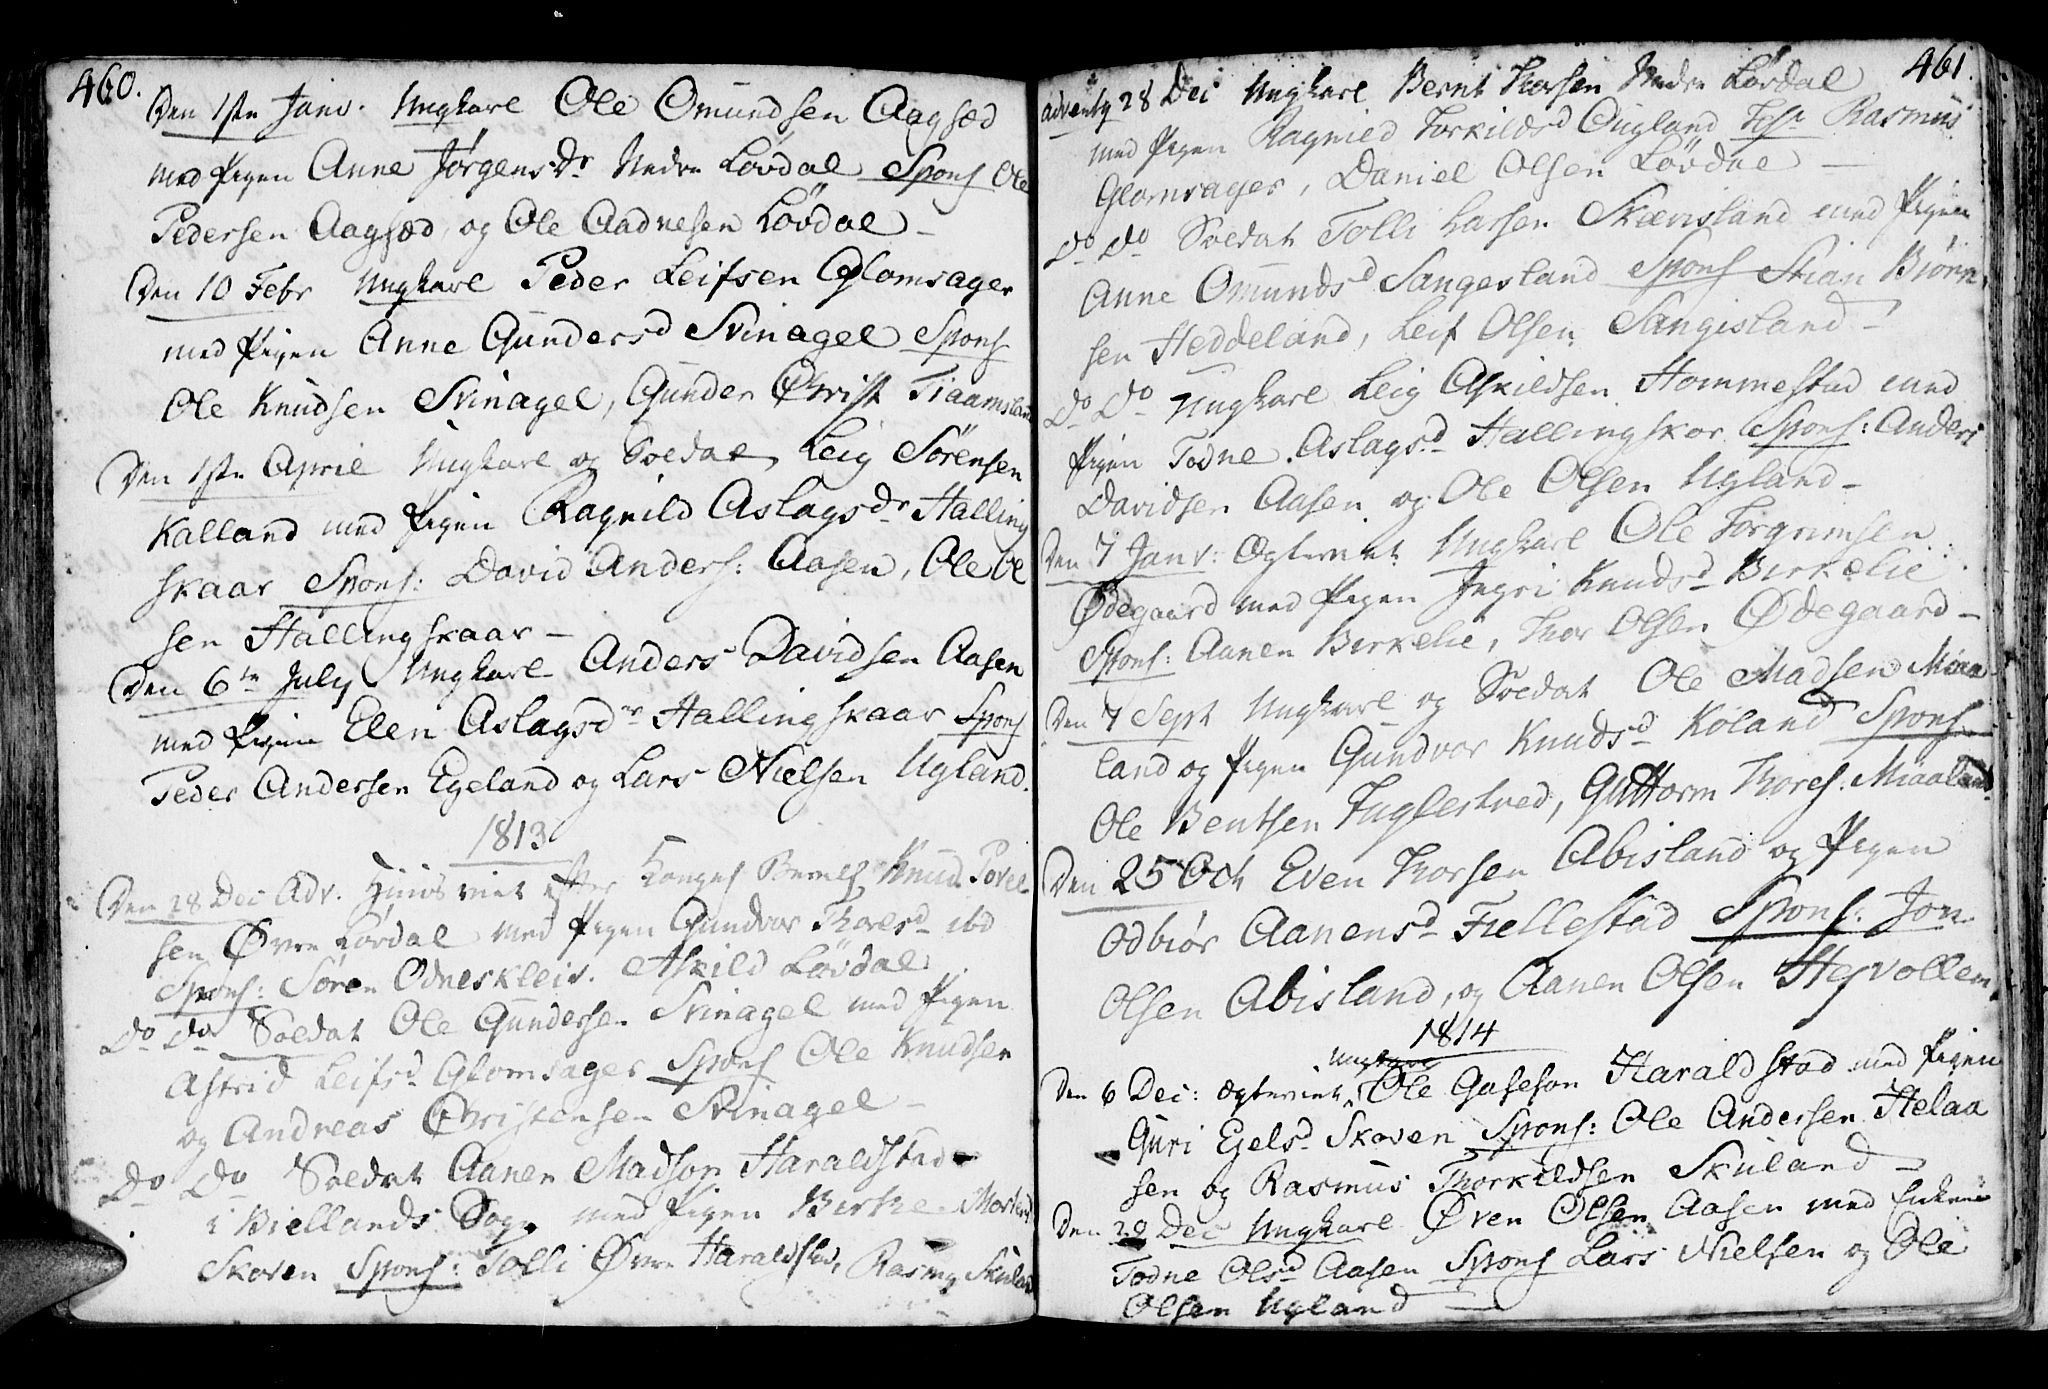 460.
Den 1ste Janv. Ungkarl Ole Omundsen Aagsæd
med Pigen Anne Jørgens Dr Nedre Løvdal Spons Ole
Pedersen Aagsæd og Ole Aadnesen Løvdal –
Den 10 Febr Ungkarl Peder Leifsen Glomsager
med Pigen Anne Gundersd Svinagel Spons
Ole Knudsen Svinagel, Gunder Christ Tiaamsland
Den 1ste April Ungkarl og Soldat Leig Sørensen
Kalland med Pigen Ragnild Aslags Dr Halling
skaar Spons: David Anders: Aasen, Ole Ol
sen Hallingskaar –
Den 6te July Ungkarl Anders Davidsen Aasen
med Pigen Elen Aslagsdr Hallingskaar Spons
Peder Andersen Egeland og Lars Nielsen Ugland.
1813
Den 28 Dec Adv. viet efter Konges Bevelg Knud Povel
sen Øvre Løvdal med Pigen Gundvor Thoresd ibd
Spons: Søren Odneskleiv. Askild Løvdal
Do Do Soldat Ole Gundersen Svinagel med Pigen
Astrid Leifsd Glomsager Spons Ole Knudsen
og Andreas Christensen Svinagel –
Do Do Soldat Aanen Madson Haraldstad
i Biellands Sogn med Pigen Birthe Mortensd
Skoven Spons: Tolli Øvre Haraldstad, Rasmus Skuland
461.
28 Dec Ungkarl Bernt Thorsen Nedre Løvdal
med Pigen Ragnild Torkildsd Ougland Rasmus
Glomsager, Daniel Olsen Løvdal –
Do Do Soldat Tolli Larsen Skævisland med Pigen
Anne Omundsd Sangesland Spons Stian Biørn
sen Heddeland, Leif Olsen Sangisland –
Do Do Ungkarl Leig Askildsen Hommestad med
Pigen Todne Aslagsd Hallingskor Spons: Anders
Davidsen Aasen og Ole Olsen Ugland –
Den 7 Janv: Ægteviet Ungkarl Ole Torgrimsen
Ødegaard med Pigen Ingri Knudsd Birkelie
Spons: Aanen Birkelie, Thor Olsen Ødegaard –
Den 7 Sept Ungkarl og Soldat Ole Madsen Miaa
land og Pigen Gundvor Knudsd Køland Spons
Ole Bentsen Fuglestved, Guttorm Thores: Miaaland
Den 25 Oct Even Thorsen Abisland og Pigen
Odbiør Aanensd Fiellestad Spons: Jon
Olsen Abisland, og Aanen Olsen Hesvollem
1814
Ungkarl
Den 6 Dec: Ægteviet Ole Gaseson Haraldstad med Pigen
Guri Egelsd Skoven Spons: Ole Andersen Helaa
sen og Rasmus Thorkildsen Skuland –
Den 29 Dec Ungkarl Øven Olsen Aasen med Enken
Todne Olsd Aasen Spons Lars Nielsen og Ole
Olsen Ugland –